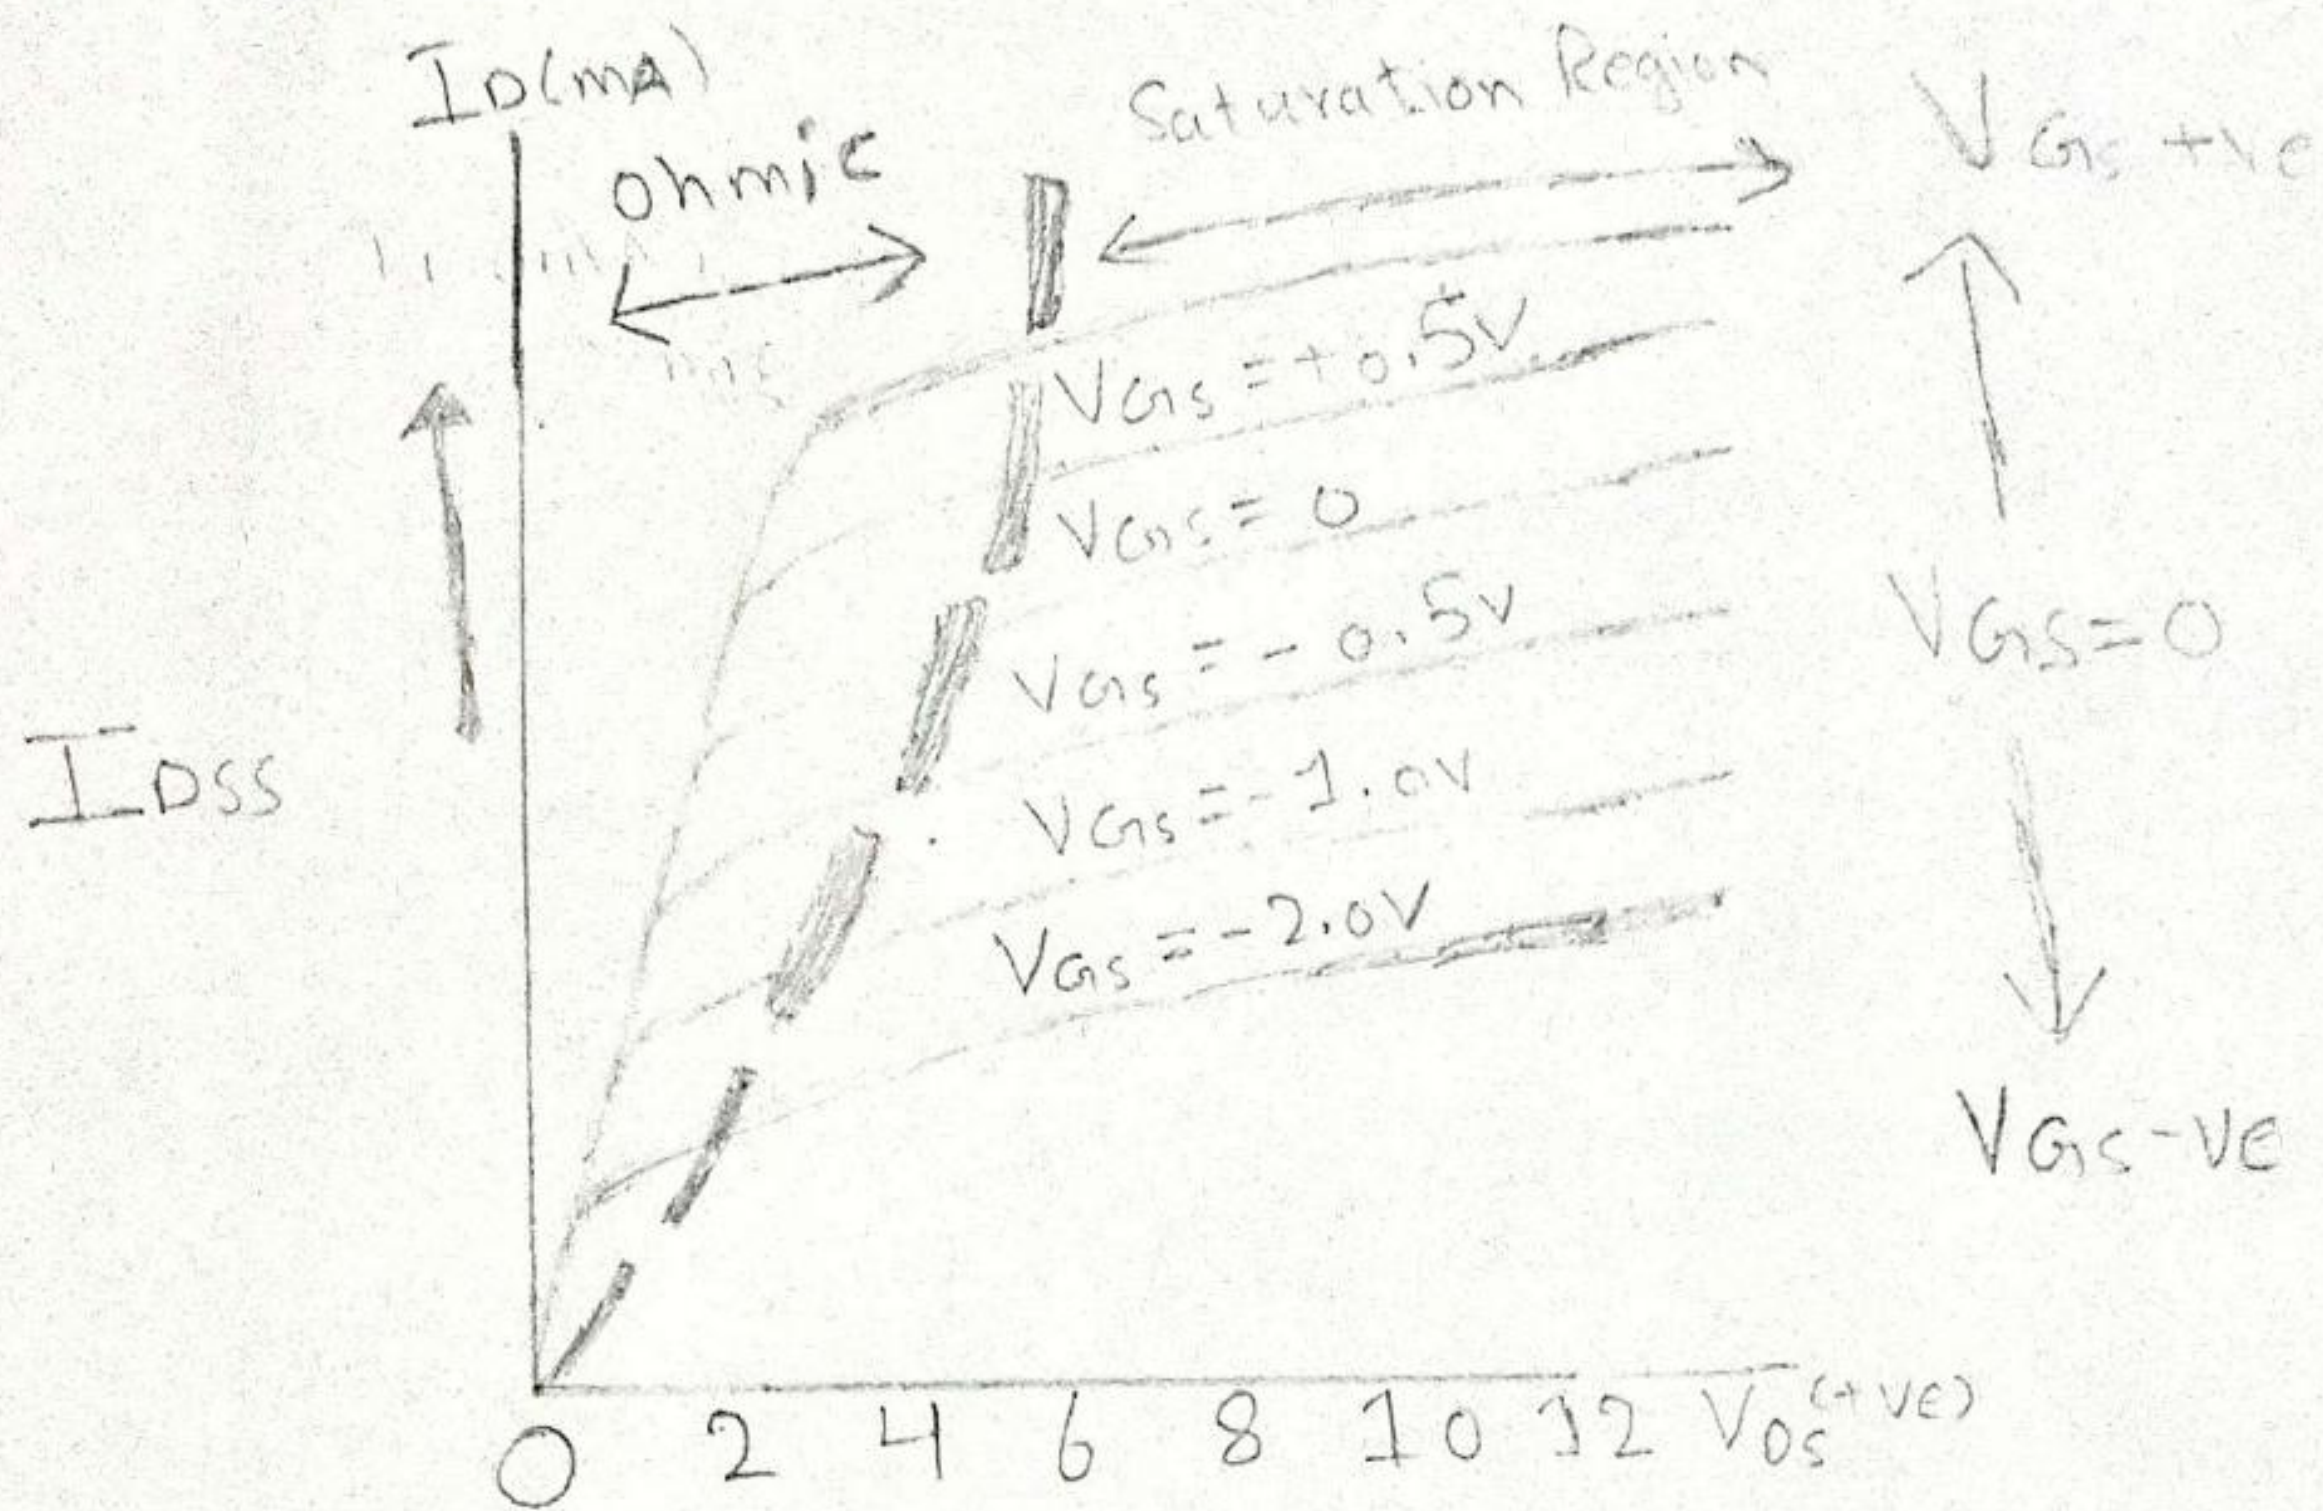 ID(mA)
ohmic
Saturation Region
VGS +ve
VGS = +0.5V
VGS = 0
VGS = -0.5V
VGS = -1.0V
VGS = -2.0V
VGS = 0
IDSS
VGS -ve
0 2 4 6 8 10 12 VDS (+ve)